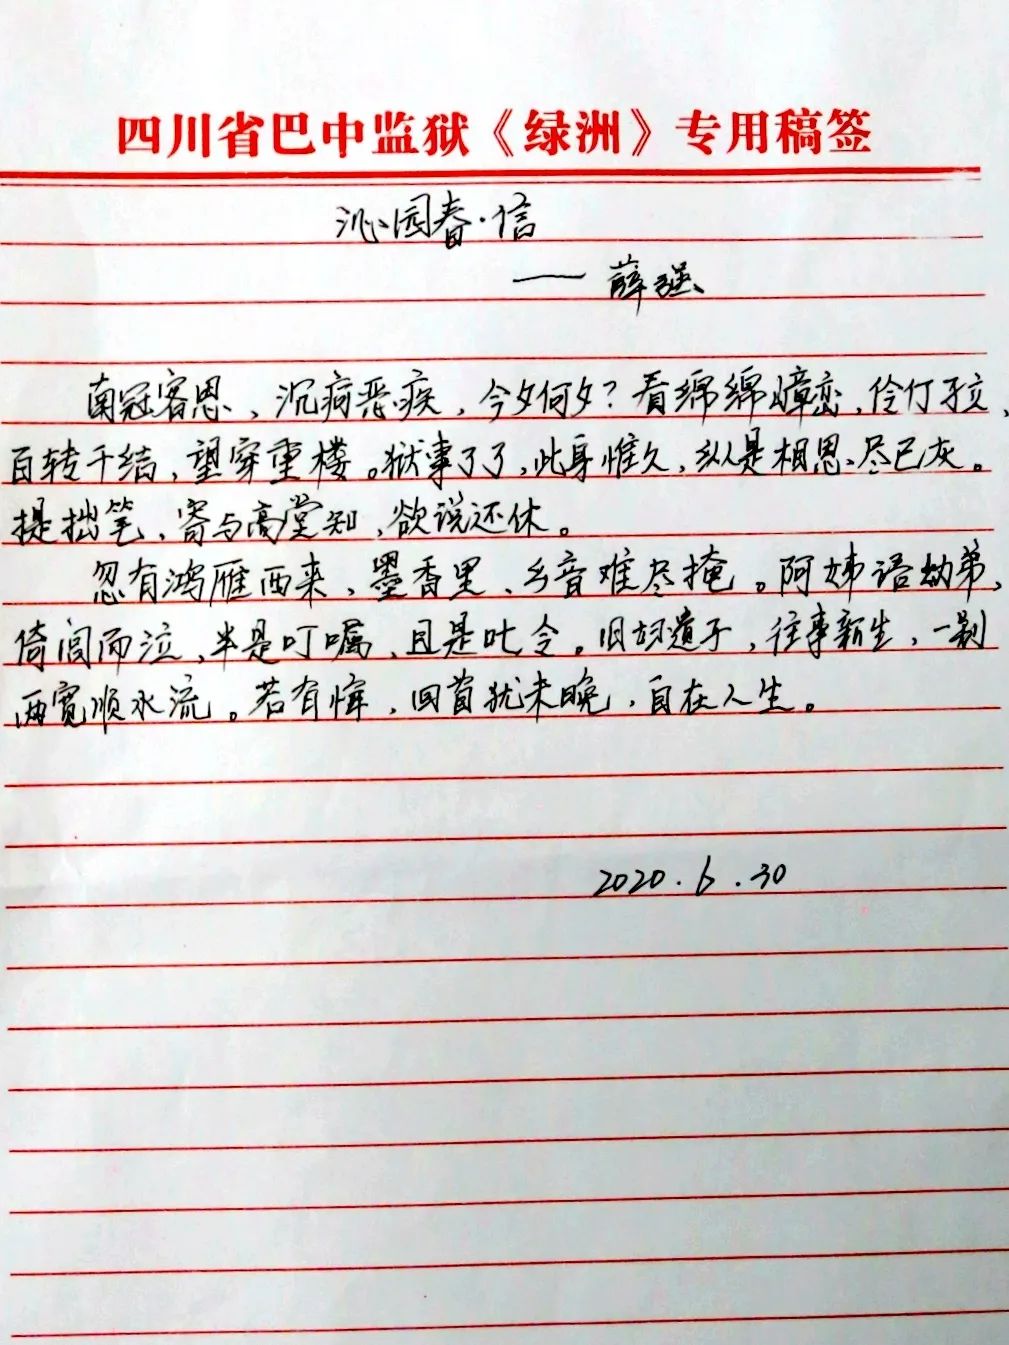 四川省巴中监狱《绿洲》专用稿签
沁园春·信
——薛强
南冠客思，沉疴恶疾，今夕何夕？看绵绵嶂峦，伶仃孑立，
百转千结，望穿重楼。狱事了了，此身惟久，纵是相思尽已灰。
提拙笔，寄与高堂知，欲说还休。
忽有鸿雁西来，墨香里，乡音难尽掩。阿姊语幼弟，
倚闾而泣，半是叮嘱，且是叱令。旧刼遗子，往事新生，一别
两宽顺水流。若有悔，回首犹未晚，自在人生。
2020.6.30